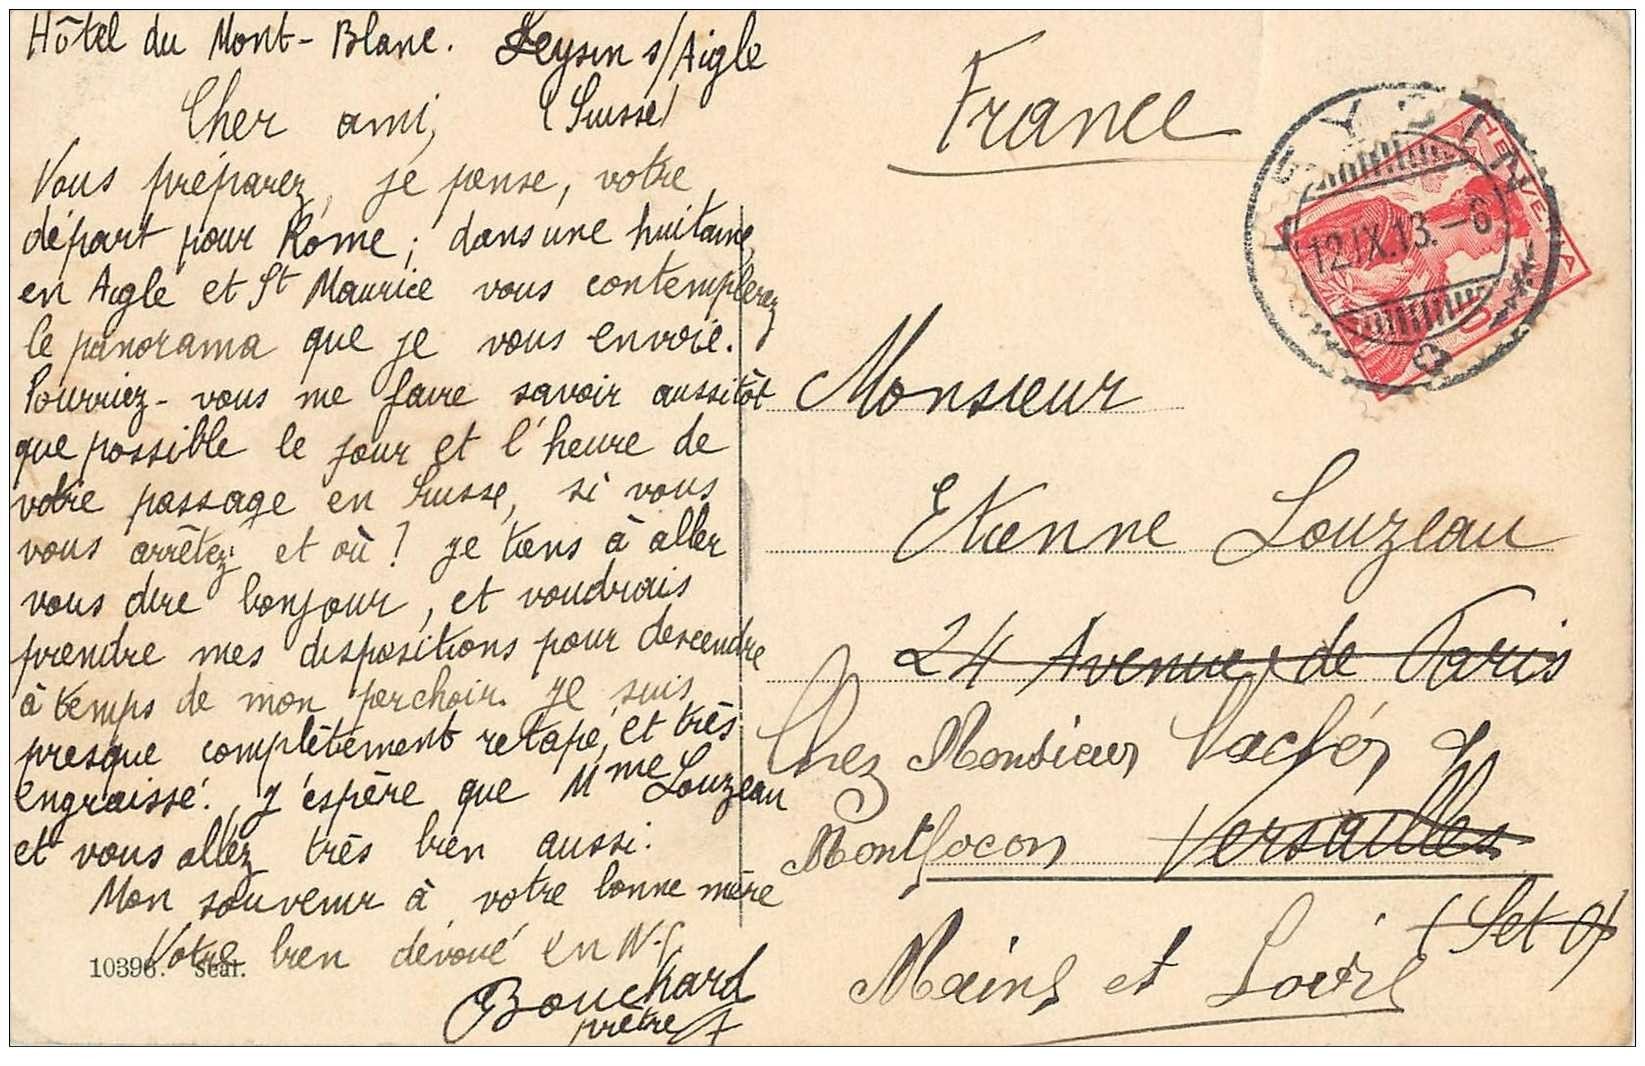 Hôtel du Mont-Blanc. Leysin s/Aigle
(Suisse)
Cher ami,
Vous préparez, je pense, votre
départ pour Rome ; dans une huitaine,
en Aigle et St Maurice vous contemplerez
le panorama que je vous envoie.
Pourriez-vous me faire savoir aussitôt
que possible le jour et l'heure de
votre passage en Suisse, si vous
vous arrêtez et où ? Je tiens à aller
vous dire bonjour, et voudrais
prendre mes dispositions pour descendre
à temps de mon perchoir. Je suis
presque complètement retapé, et très
engraissé. J'espère que Mme Louzeau
et vous allez très bien aussi.
Mon souvenir à votre bonne mère
Votre bien dévoué en N.-S.
Bouchard
prêtre
10396.
France
LEYSIN
12.IX.13.-6
HELVETIA
10
Monsieur
Etienne Louzeau
24 Avenue de Paris
Chez Monsieur Vacher
Montfocon Versailles
(Set O)
Maine et Loire